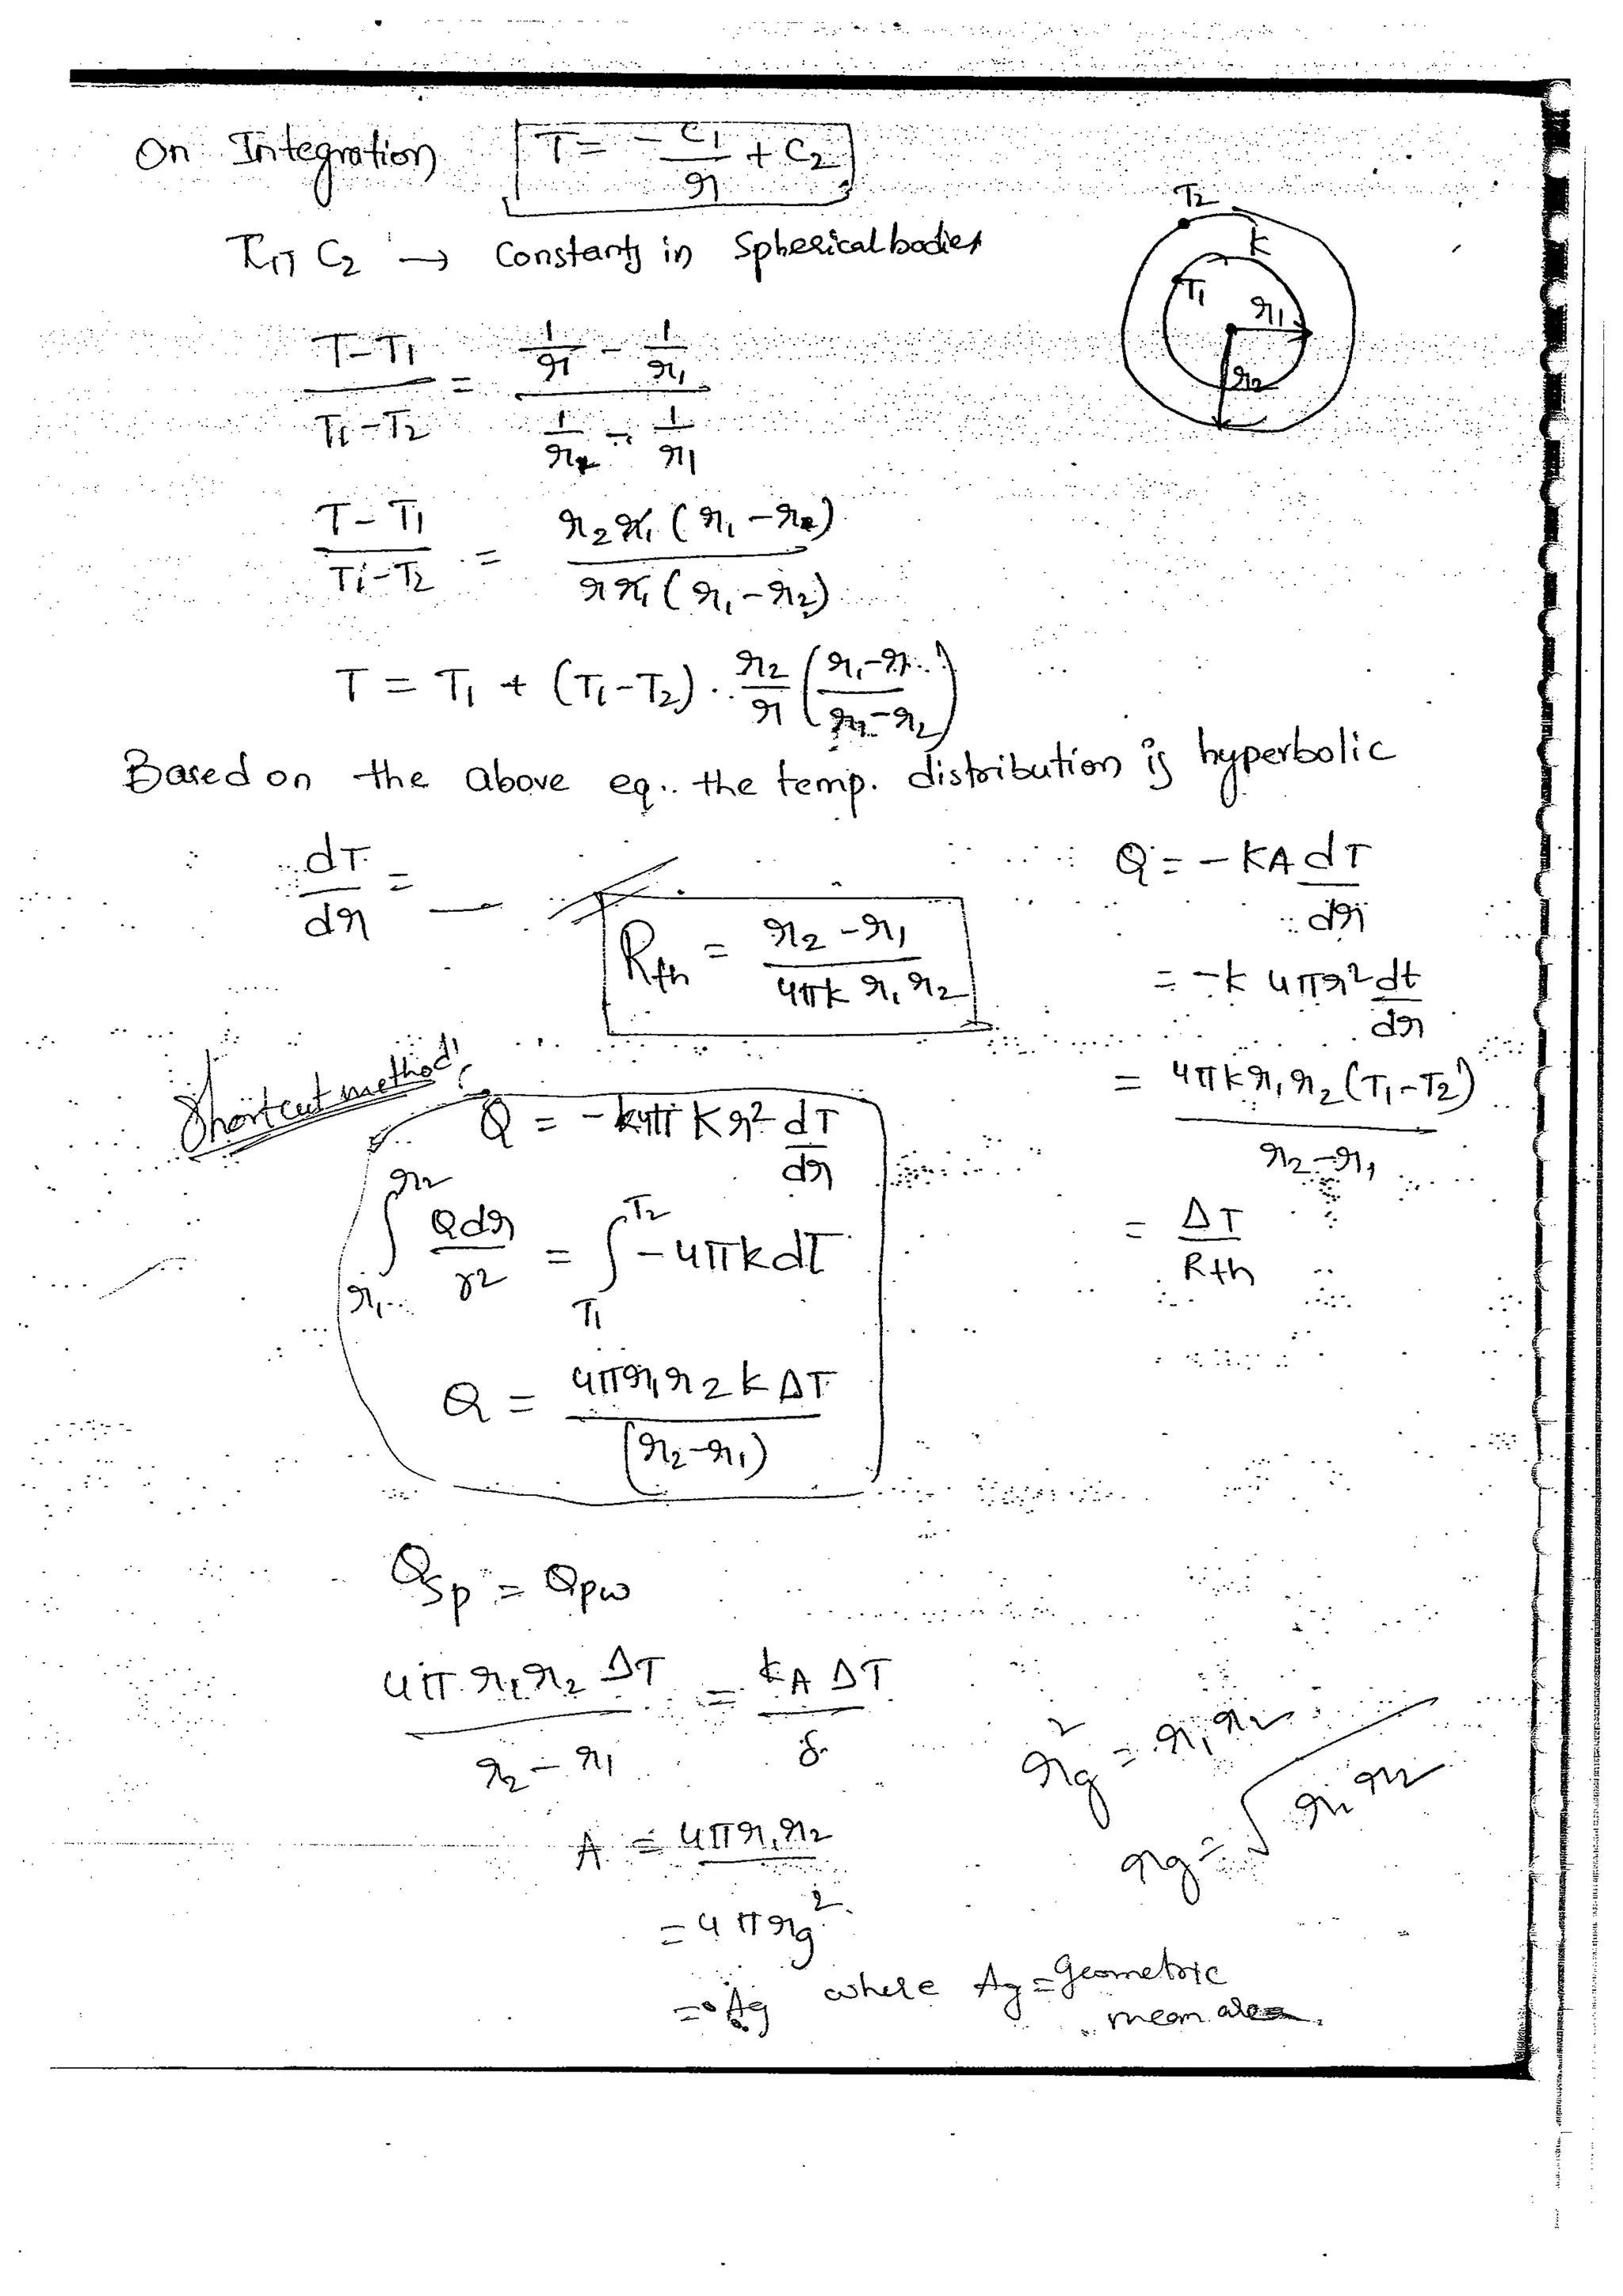 On Integration T = - C1/r + C2
T2
K
T1
r1
r2
C2 → Constants in Spherical bodies
T-T1 / T1-T2 = (1/r - 1/r1) / (1/r2 - 1/r1)
T-T1 / T1-T2 = r2 r1 (r1-r2) / r r1 (r1-r2)
T = T1 + (T1-T2) . r2/r (r1-r / r1-r2)
Based on the above eq. the temp. distribution is hyperbolic
dT/dr = —
Rth = r2-r1 / 4πk r1 r2
Q = -KA dT/dr
= -k 4πr² dt/dr
= 4πk r1 r2 (T1-T2) / r2-r1
= ΔT / Rth
Shortcut method:
Q = - 4π K r² dT/dr
∫r1^r2 Qdr/r2 = ∫T1^T2 -4πkdT
Q = 4πr1 r2 k ΔT / (r2-r1)
Qsp = Qpw
4π r1 r2 ΔT / r2-r1 = kA ΔT / δ
A = 4πr1 r2
= 4πrg²
= Ag where Ag = geometric
mean area.
rg² = r1 r2
rg = √r1 r2